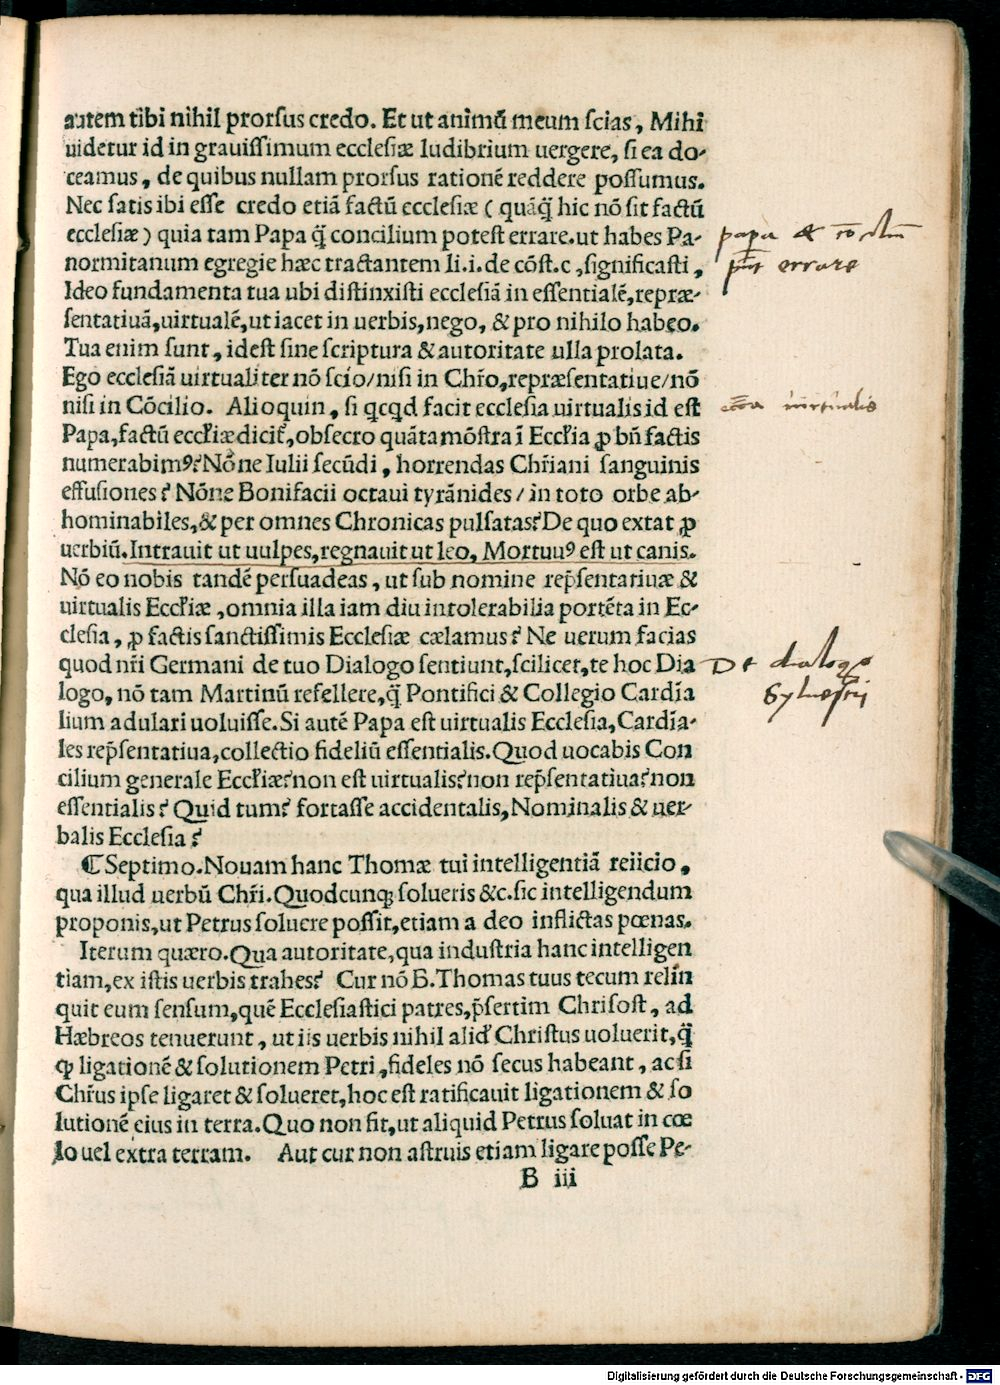 autem tibi nihil prorsus credo. Et ut animū meum scias, Mihi
uidetur id in grauissimum ecclesiæ ludibrium uergere, si ea do-
ceamus, de quibus nullam prorsus rationē reddere possumus.
Nec satis ibi esse credo etiā factū ecclesiæ ( quāq̄ hic nō sit factū
ecclesiæ ) quia tam Papa q̄ concilium potest errare. ut habes Pa-
normitanum egregie hæc tractantem li. i. de cōst. c, significasti,
Ideo fundamenta tua ubi distinxisti ecclesiā in essentialē, repræ-
sentatiuā, uirtualē, ut iacet in uerbis, nego, & pro nihilo habeo.
Tua enim sunt, idest sine scriptura & autoritate ulla prolata.
Ego ecclesiā uirtualiter nō scio/nisi in Chr̄o, repræsentatiue/nō
nisi in Cōcilio. Alioquin, si qcqd facit ecclesia uirtualis id est
Papa, factū eccl̄iæ dicit̄, obsecro quāta mōstra ī Eccl̄ia ꝓ bn̄ factis
numerabimꝰ? Nōne Iulii secūdi, horrendas Chr̄iani sanguinis
effusiones? Nōne Bonifacii octaui tyrānides/in toto orbe ab-
hominabiles, & per omnes Chronicas pulsatas? De quo extat ꝓ
uerbiū. Intrauit ut uulpes, regnauit ut leo, Mortuuꝰ est ut canis.
Nō eo nobis tandē persuadeas, ut sub nomine rep̄sentatiuæ &
uirtualis Eccl̄iæ, omnia illa iam diu intolerabilia portēta in Ec-
clesia, ꝓ factis sanctissimis Ecclesiæ cælamus? Ne uerum facias
quod nr̄i Germani de tuo Dialogo sentiunt, scilicet, te hoc Dia
logo, nō tam Martinū refellere, q̄ Pontifici & Collegio Cardīa
lium adulari uoluisse. Si autē Papa est uirtualis Ecclesia, Cardīa-
les rep̄sentatiua, collectio fideliū essentialis. Quod uocabis Con
cilium generale Eccl̄iæ? non est uirtualis? non rep̄sentatiua? non
essentialis? Quid tum? fortasse accidentalis, Nominalis & uer-
balis Ecclesia?
¶ Septimo. Nouam hanc Thomæ tui intelligentiā reiicio,
qua illud uerbū Chr̄i. Quodcunq; solueris &c. sic intelligendum
proponis, ut Petrus soluere possit, etiam a deo inflictas pœnas.
Iterum quæro. Qua autoritate, qua industria hanc intelligen
tiam, ex istis uerbis trahes? Cur nō B. Thomas tuus tecum relin
quit eum sensum, quē Ecclesiastici patres, p̄sertim Chrisost, ad
Hæbreos tenuerunt, ut iis uerbis nihil alid̄ Christus uoluerit, q̄
ꝙ ligationē & solutionem Petri, fideles nō secus habeant, ac si
Chr̄us ipse ligaret & solueret, hoc est ratificauit ligationem & so
lutionē eius in terra. Quo non fit, ut aliquid Petrus soluat in cœ
lo uel extra terram. Aut cur non astruis etiam ligare posse Pe-
B iii
papa & cōcilm
pn̄t errare
ecc̄a uirtualis
De dialogo
Syluestri
Digitalisierung gefördert durch die Deutsche Forschungsgemeinschaft - DFG